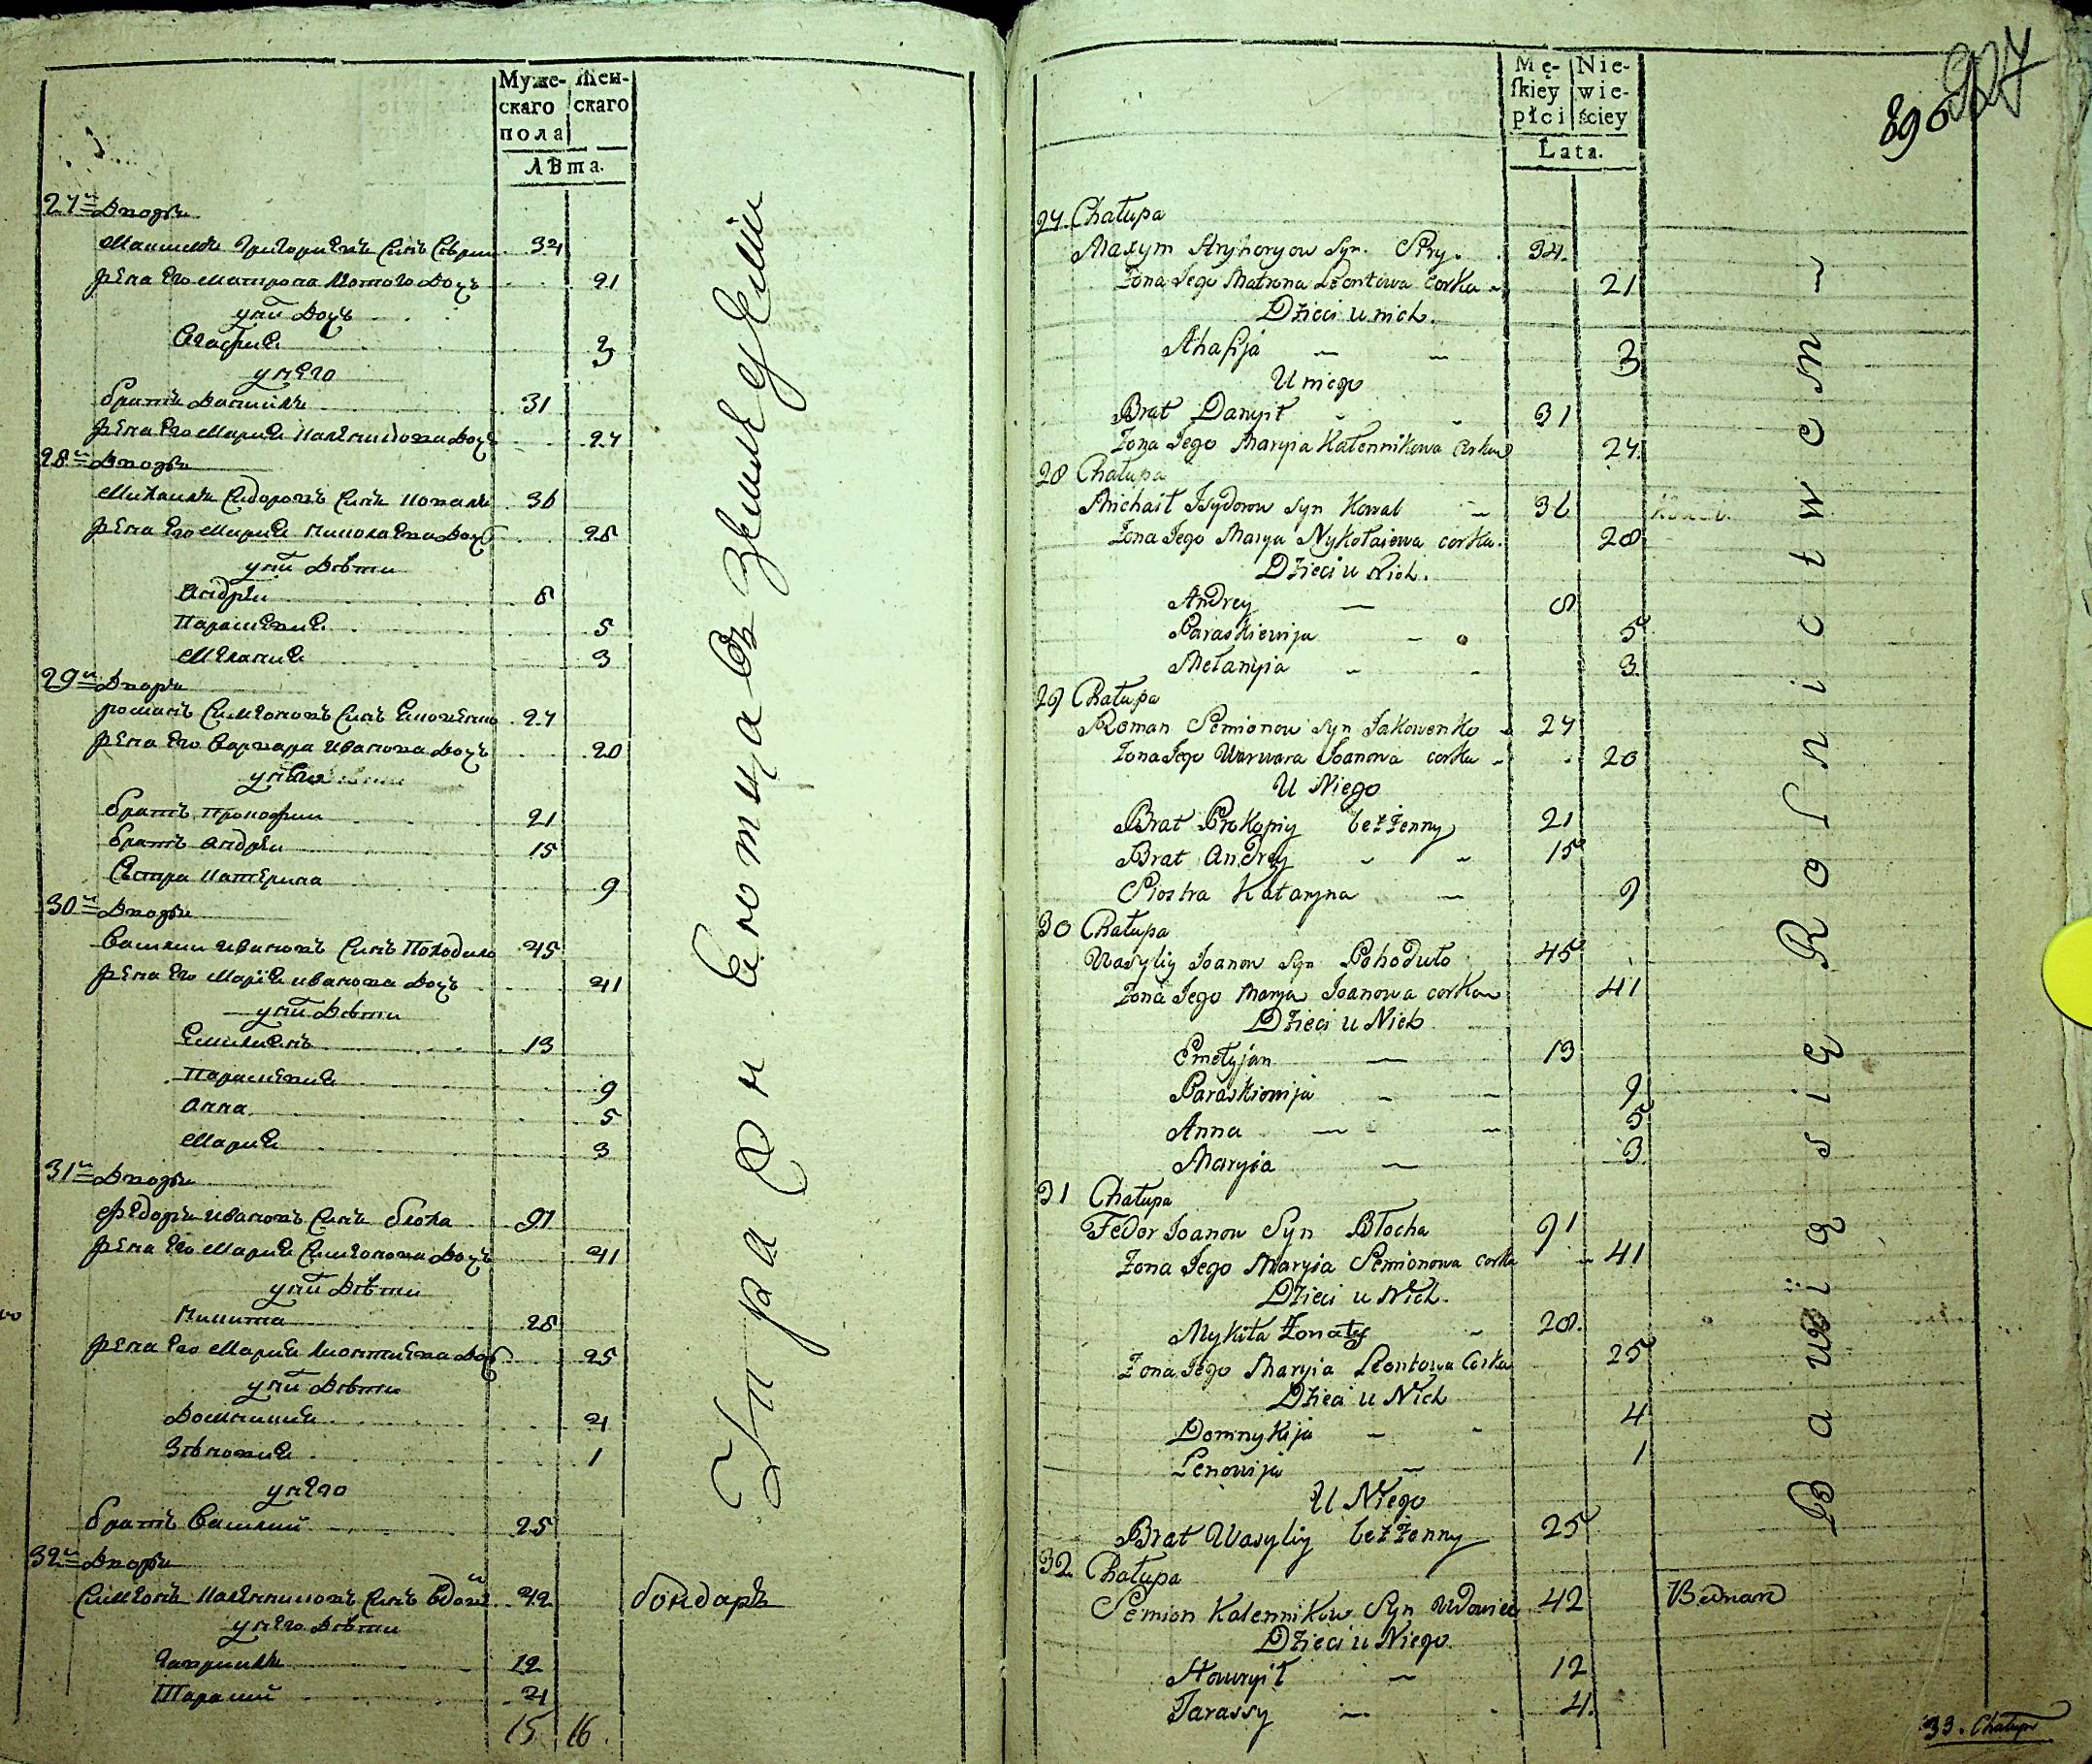 Муже-
скаго
пола
Жен-
скаго
лѣта.
27й Дворъ
Максимъ Григорьевъ Синъ 34
Жена его Матрона Доч 21
у них Доч
Агафия 3
у него
братъ Даниилъ 31
Жена его Мария Каленикова Доч 27
28й Дворъ
Михаилъ Сидоровъ Синъ Коваль 36
Жена его Мария Николаева Доч 28
у них Дѣти
Андрей 8
Параскевия 5
Мелания 3
29й Дворъ
Романъ Симеоновъ Синъ 27
Жена его Варвара Иванова Доч 20
у него
братъ Прокофии 21
братъ Андреи 15
Сестра Катерина 9
30й Дворъ
Василии Ивановъ Синъ Походило 45
Жена его Мария Иванова Доч 41
у них Дѣти
Емилианъ 13
Параскевия 9
Анна 5
Мария 3
31й Дворъ
Федоръ Ивановъ Синъ блоха 91
Жена его Мария Симеонова Доч 41
у них Дѣти
Никита 28
Жена его Мария Доч 25
у них Дѣти
Домникия 4
Зѣновия 1
у него
братъ Василий 25
32й Дворъ
Симеонъ Каленниковъ Синъ вдов 42 бондаръ
у него Дѣти
Гавриилъ 12
Тарасий 4
15 16
Упражн. ются в земледелии
Mę-
ſkiey
płci
Nie-
wie-
ściey
Lata.
896
927
27. Chałupa
Maxym Hryhoryow Syn. 34.
Żona Jego Matrona Leontowa corka 21
Dzieci u nich.
Ahafija 3
U niego
Brat Danyił 31
Żona Jego Maryia Kalennikowa Corka 27.
28 Chałupa
Michaił Isydorow Syn Kowal 36
Żona Jego Marya Nykołaiewa corka. 28
Dzieci u Nich.
Andrey 8
Paraskiewija 5
Mełanyia 3.
29 Chałupa
Roman Semionow Syn Jakowenko 27
Żona Jego Warwara Joanowa corka 20
U Niego
Brat Prokopiy bezżenny 21
Brat Andrey 15
Siostra Kataryna 9
30 Chałupa
Wasyliy Joanow Syn Pohodyło 45
Żona Jego Marya Joanowa corka 41
Dzieci u Nich
Emełyjan 13
Paraskiewija 9
Anna 5
Maryia 3.
31 Chałupa
Fedor Joanow Syn Błocha 91
Żona Jego Maryia Semionowa corka 41
Dzieci u Nich.
Mykita Żonaty 28.
Żona Jego Maryia Leontowa Corka 25
Dzieci u Nich
Domnykija 4
Zenowija 1
U Niego
Brat Wasyliy bezżenny 25
32. Chałupa
Semion Kalennikow Syn Wdowiec 42 Bednarz
Dzieci u Niego
Hawryił 12
Tarassy 4.
Bawią się Rolnictwem
33. Chałupa